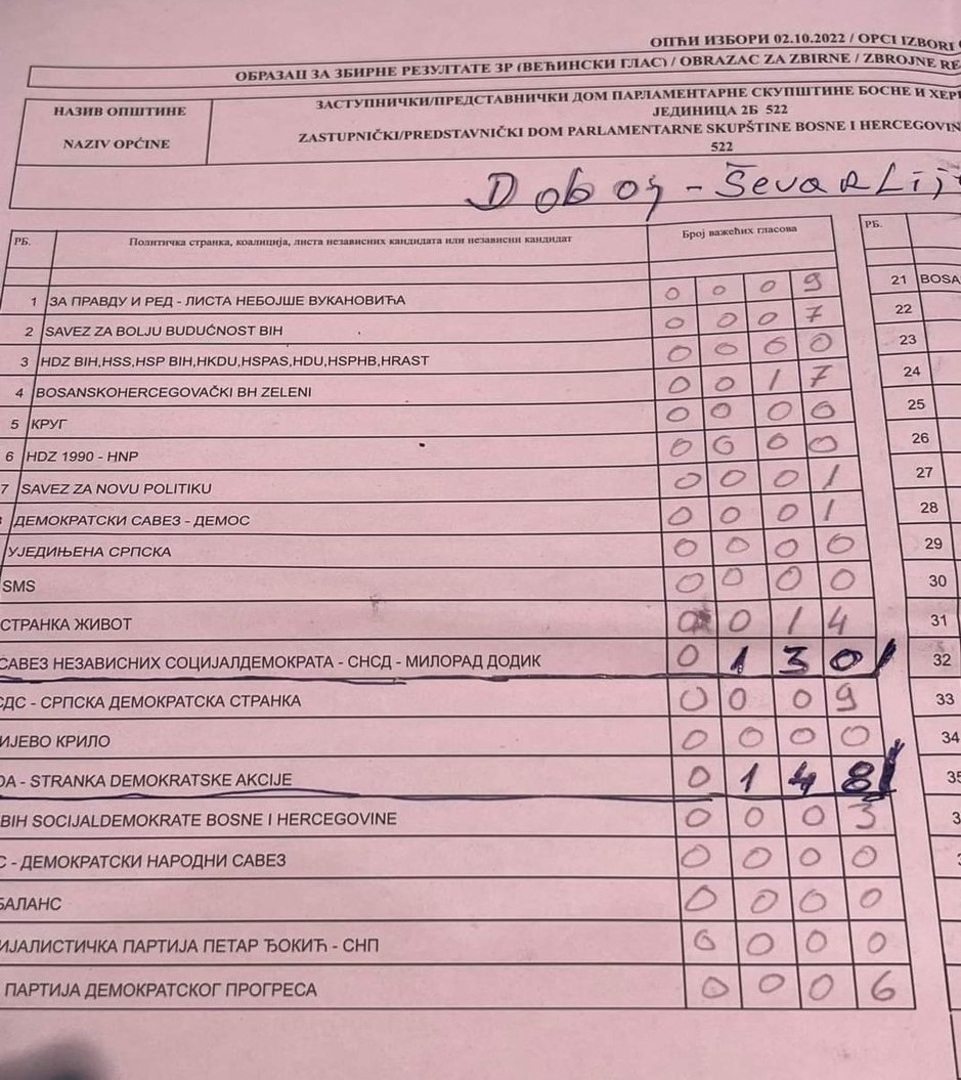 ОПЋИ ИЗБОРИ 02.10.2022 / OPCI IZBORI
ОБРАЗАЦ ЗА ЗБИРНЕ РЕЗУЛТАТЕ ЗР (ВЕЋИНСКИ ГЛАС) / OBRAZAC ZA ZBIRNE / ZBROJNE RE
НАЗИВ ОПШТИНЕ
NAZIV OPĆINE
ЗАСТУПНИЧКИ/ПРЕДСТАВНИЧКИ ДОМ ПАРЛАМЕНТАРНЕ СКУПШТИНЕ БОСНЕ И ХЕР
ЈЕДИНИЦА 2Б 522
ZASTUPNIČKI/PREDSTAVNIČKI DOM PARLAMENTARNE SKUPŠTINE BOSNE I HERCEGOVIN
522
Doboj - Ševarlij
РБ. Политичка странка, коалиција, листа независних кандидата или независни кандидат Број важећих гласова РБ.
1 ЗА ПРАВДУ И РЕД - ЛИСТА НЕБОЈШЕ ВУКАНОВИЋА 0 0 0 9 21 BOSA
2 SAVEZ ZA BOLJU BUDUĆNOST BIH 0 0 0 7 22
3 HDZ BIH,HSS,HSP BIH,HKDU,HSPAS,HDU,HSPHB,HRAST 0 0 0 0 23
4 BOSANSKOHERCEGOVAČKI BH ZELENI 0 0 1 7 24
5 КРУГ 0 0 0 0 25
6 HDZ 1990 - HNP 0 0 0 0 26
7 SAVEZ ZA NOVU POLITIKU 0 0 0 1 27
ДЕМОКРАТСКИ САВЕЗ - ДЕМОС 0 0 0 1 28
УЈЕДИЊЕНА СРПСКА 0 0 0 0 29
SMS 0 0 0 0 30
СТРАНКА ЖИВОТ 0 0 1 4 31
САВЕЗ НЕЗАВИСНИХ СОЦИЈАЛДЕМОКРАТА - СНСД - МИЛОРАД ДОДИК 0 1 3 0 32
СДС - СРПСКА ДЕМОКРАТСКА СТРАНКА 0 0 0 9 33
ИЈЕВО КРИЛО 0 0 0 0 34
DA - STRANKA DEMOKRATSKE AKCIJE 0 1 4 8 35
BIH SOCIJALDEMOKRATE BOSNE I HERCEGOVINE 0 0 0 3 3
С - ДЕМОКРАТСКИ НАРОДНИ САВЕЗ 0 0 0 0
БАЛАНС 0 0 0 0
ИЈАЛИСТИЧКА ПАРТИЈА ПЕТАР ЂОКИЋ - СНП 0 0 0 0
ПАРТИЈА ДЕМОКРАТСКОГ ПРОГРЕСА 0 0 0 6